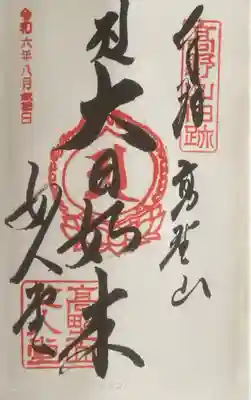 奉拝
高野山旧跡
高野山
大日如来
女人堂
高野山
女人堂
令和六年八月